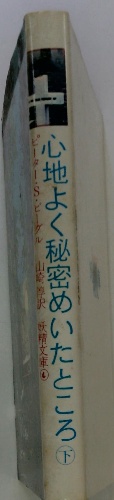 心地よく秘密めいたところ 下
ピーター・S・ビーグル 山崎淳訳 妖精文庫